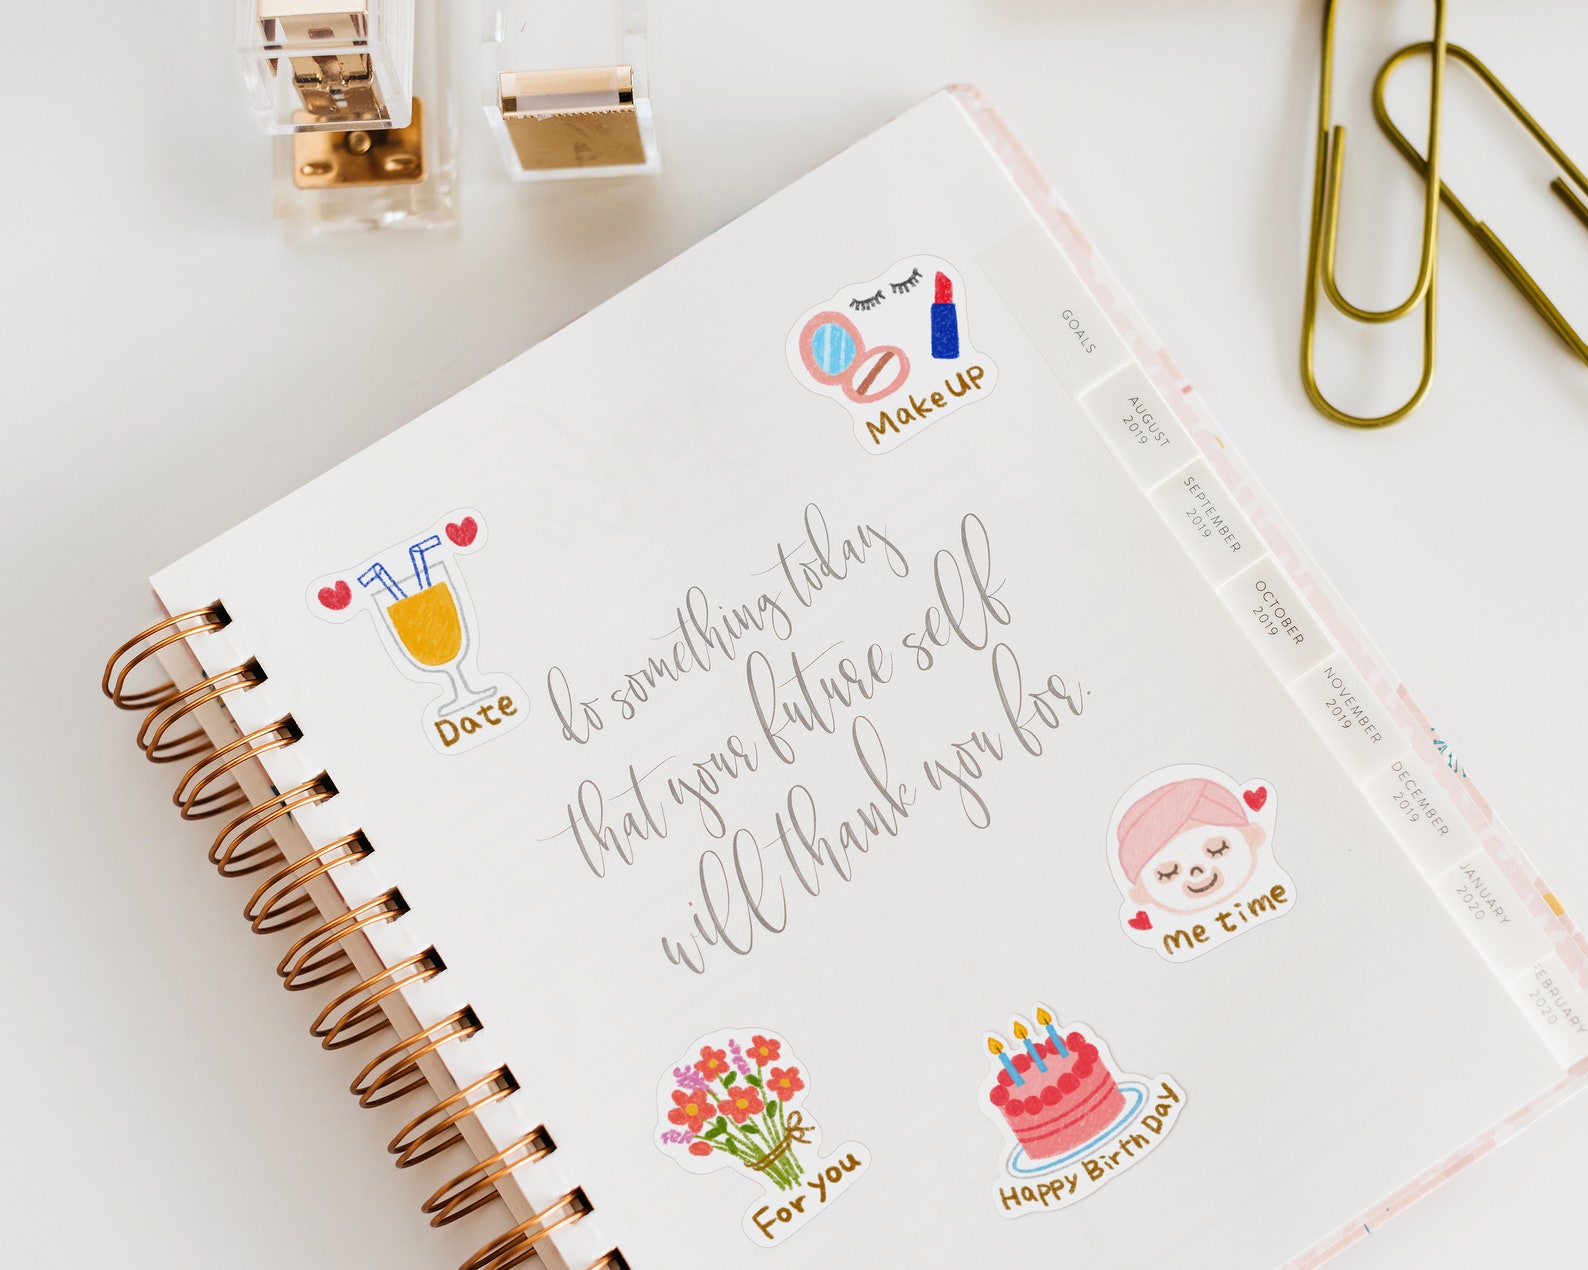 Make Up
Date
do something today
that your future self
will thank you for.
me time
For you
Happy BirthDay
GOALS
AUGUST
2019
SEPTEMBER
2019
OCTOBER
2019
NOVEMBER
2019
DECEMBER
2019
JANUARY
2020
FEBRUARY
2020